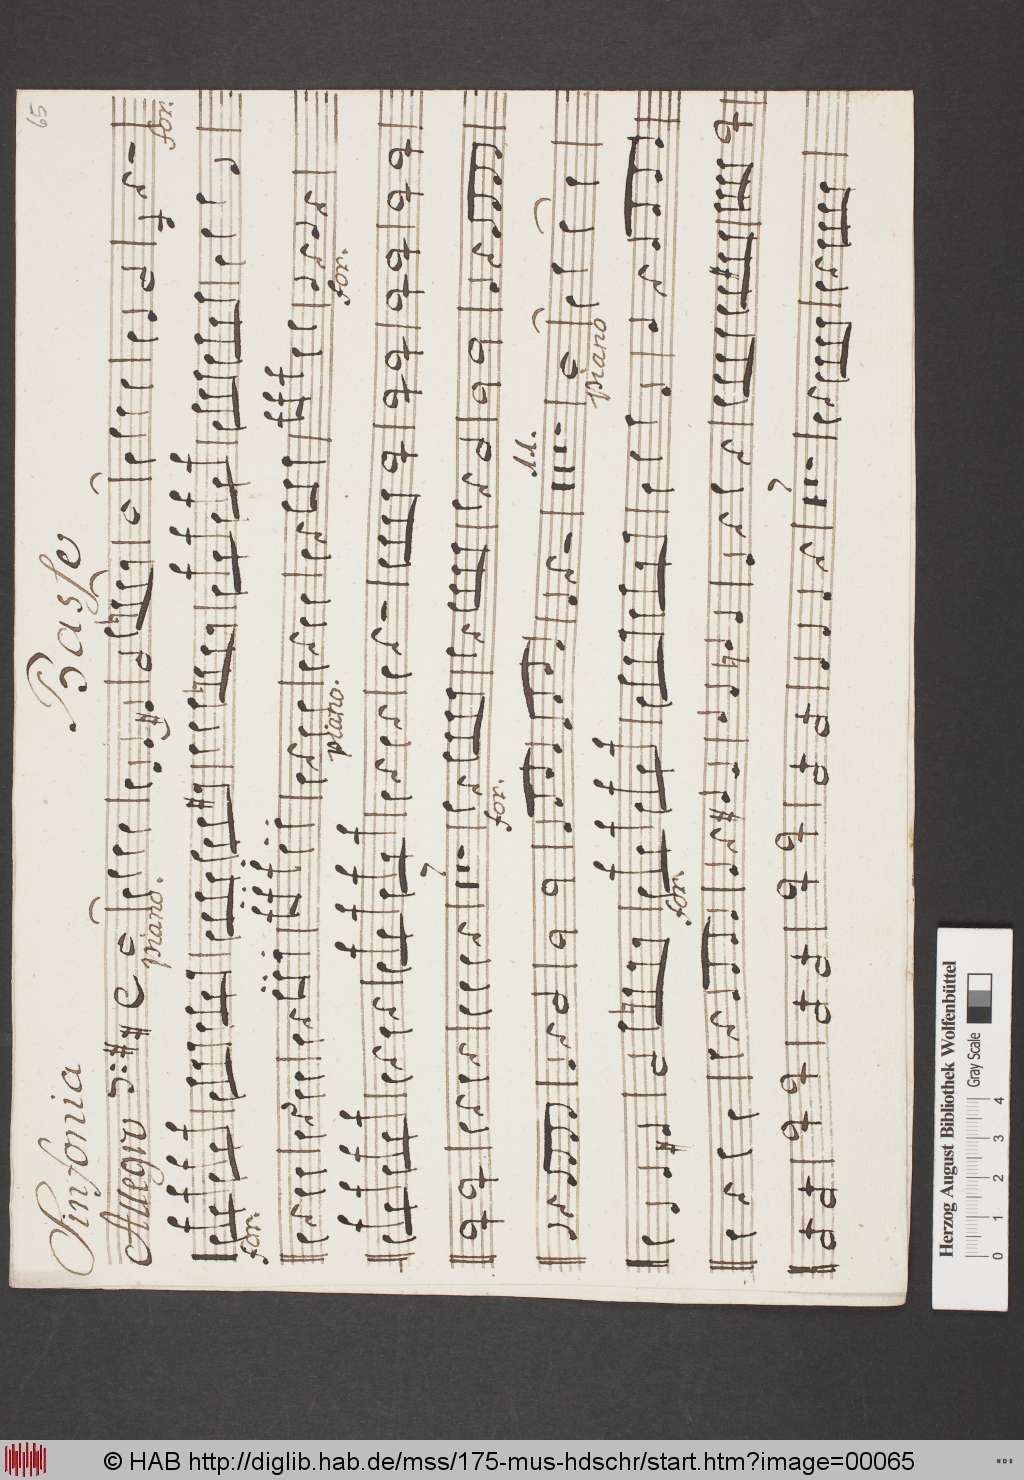 65
Sinfonia Basse
Allegro
piano. for.
for.
piano. for.
7
for.
11.
piano
for.
7
Herzog August Bibliothek Wolfenbüttel
Gray Scale
0 1 2 3 4
© HAB http://diglib.hab.de/mss/175-mus-hdschr/start.htm?image=00065